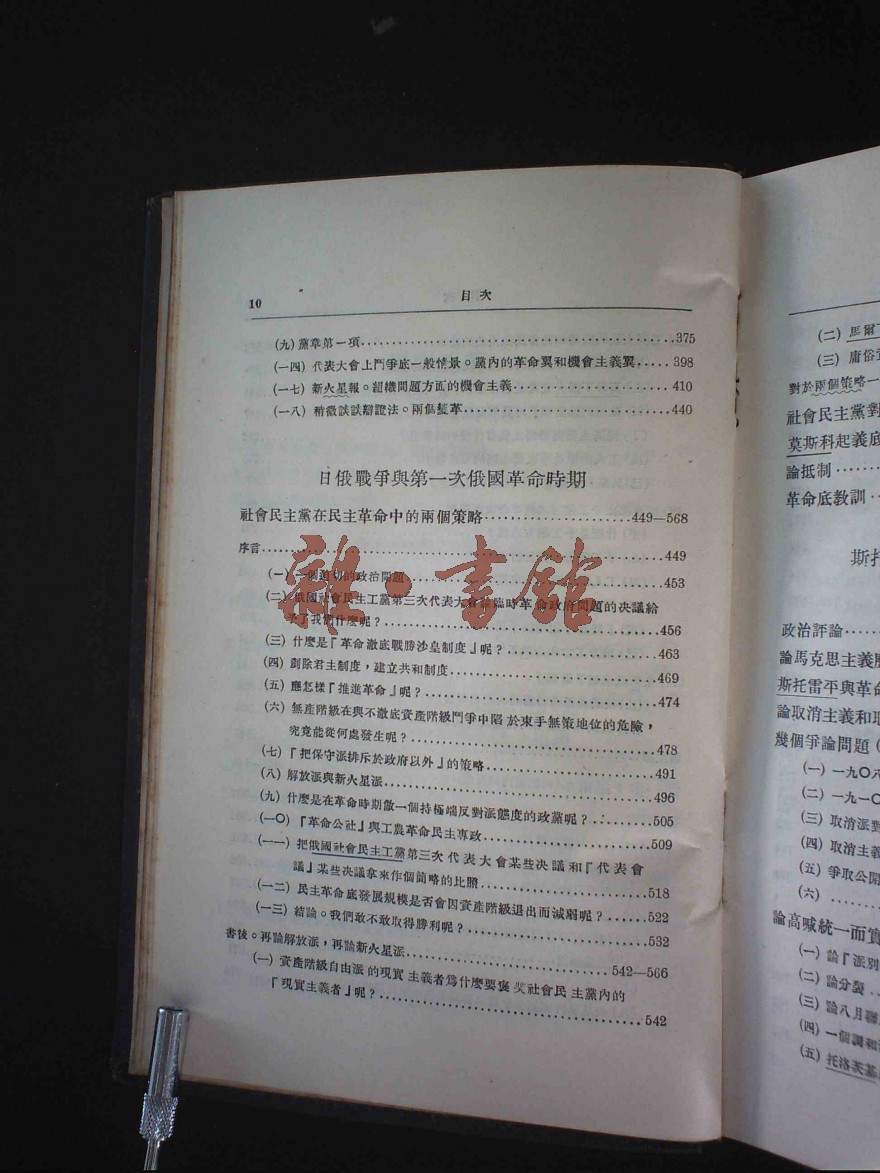 10
目次
(九) 黨章第一項 375
(一四) 代表大會上鬥爭底一般情景。黨內的革命翼和機會主義翼 398
(一七) 新火星報。組織問題方面的機會主義 410
(一八) 稍微談談辯證法。兩個變革 440
日俄戰爭與第一次俄國革命時期
社會民主黨在民主革命中的兩個策略 449—568
序言 449
(一) 一個迫切的政治問題 453
(二) 俄國社會民主工黨第三次代表大會論臨時革命政府問題的決議給
予了我們什麼呢? 456
(三) 什麼是『革命澈底戰勝沙皇制度』呢? 463
(四) 剷除君主制度,建立共和制度 469
(五) 應怎樣『推進革命』呢? 474
(六) 無產階級在與不澈底資產階級鬥爭中陷於束手無策地位的危險,
究竟能從何處發生呢? 478
(七) 『把保守派排斥於政府以外』的策略 491
(八) 解放派與新火星派 496
(九) 什麼是在革命時期做一個持極端反對派態度的政黨呢? 505
(一〇) 『革命公社』與工農革命民主專政 509
(一一) 把俄國社會民主工黨第三次代表大會某些決議和『代表會
議』某些決議拿來作個簡略的比照 518
(一二) 民主革命底發展規模是否會因資產階級退出而減弱呢? 522
(一三) 結論。我們敢不敢取得勝利呢? 532
書後。再論解放派,再論新火星派 542—566
(一) 資產階級自由派的現實主義者爲什麼要褒獎社會民主黨內的
『現實主義者』呢? 542
雜·書館
(二) 馬爾
(三) 庸俗
對於兩個策略一
社會民主黨對
莫斯科起義底
論抵制
革命底教訓
斯托
政治評論
論馬克思主義
斯托雷平與革命
論取消主義和
幾個爭論問題
(一) 一九〇八
(二) 一九一〇
(三) 取消派對
(四) 取消主義
(五) 爭取公開
(六)
論高喊統一而實
(一) 論『派別
(二) 論分裂
(三) 論八月聯
(四) 一個調和
(五) 托洛茨基